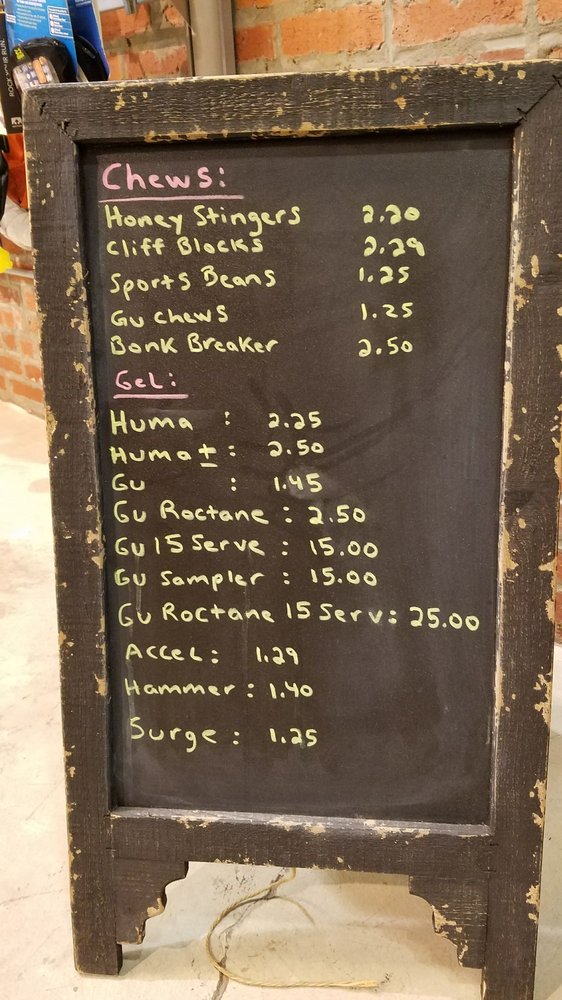 ROCK YOUR RUN
Chews:
Honey Stingers 2.20
Cliff Blocks 2.29
Sports Beans 1.25
Gu chews 1.25
Bonk Breaker 2.50
Gel:
Huma : 2.25
Huma + : 2.50
Gu : 1.45
Gu Roctane : 2.50
Gu 15 Serve : 15.00
Gu Sampler : 15.00
Gu Roctane 15 Serv: 25.00
Accel: 1.29
Hammer: 1.40
Surge: 1.25